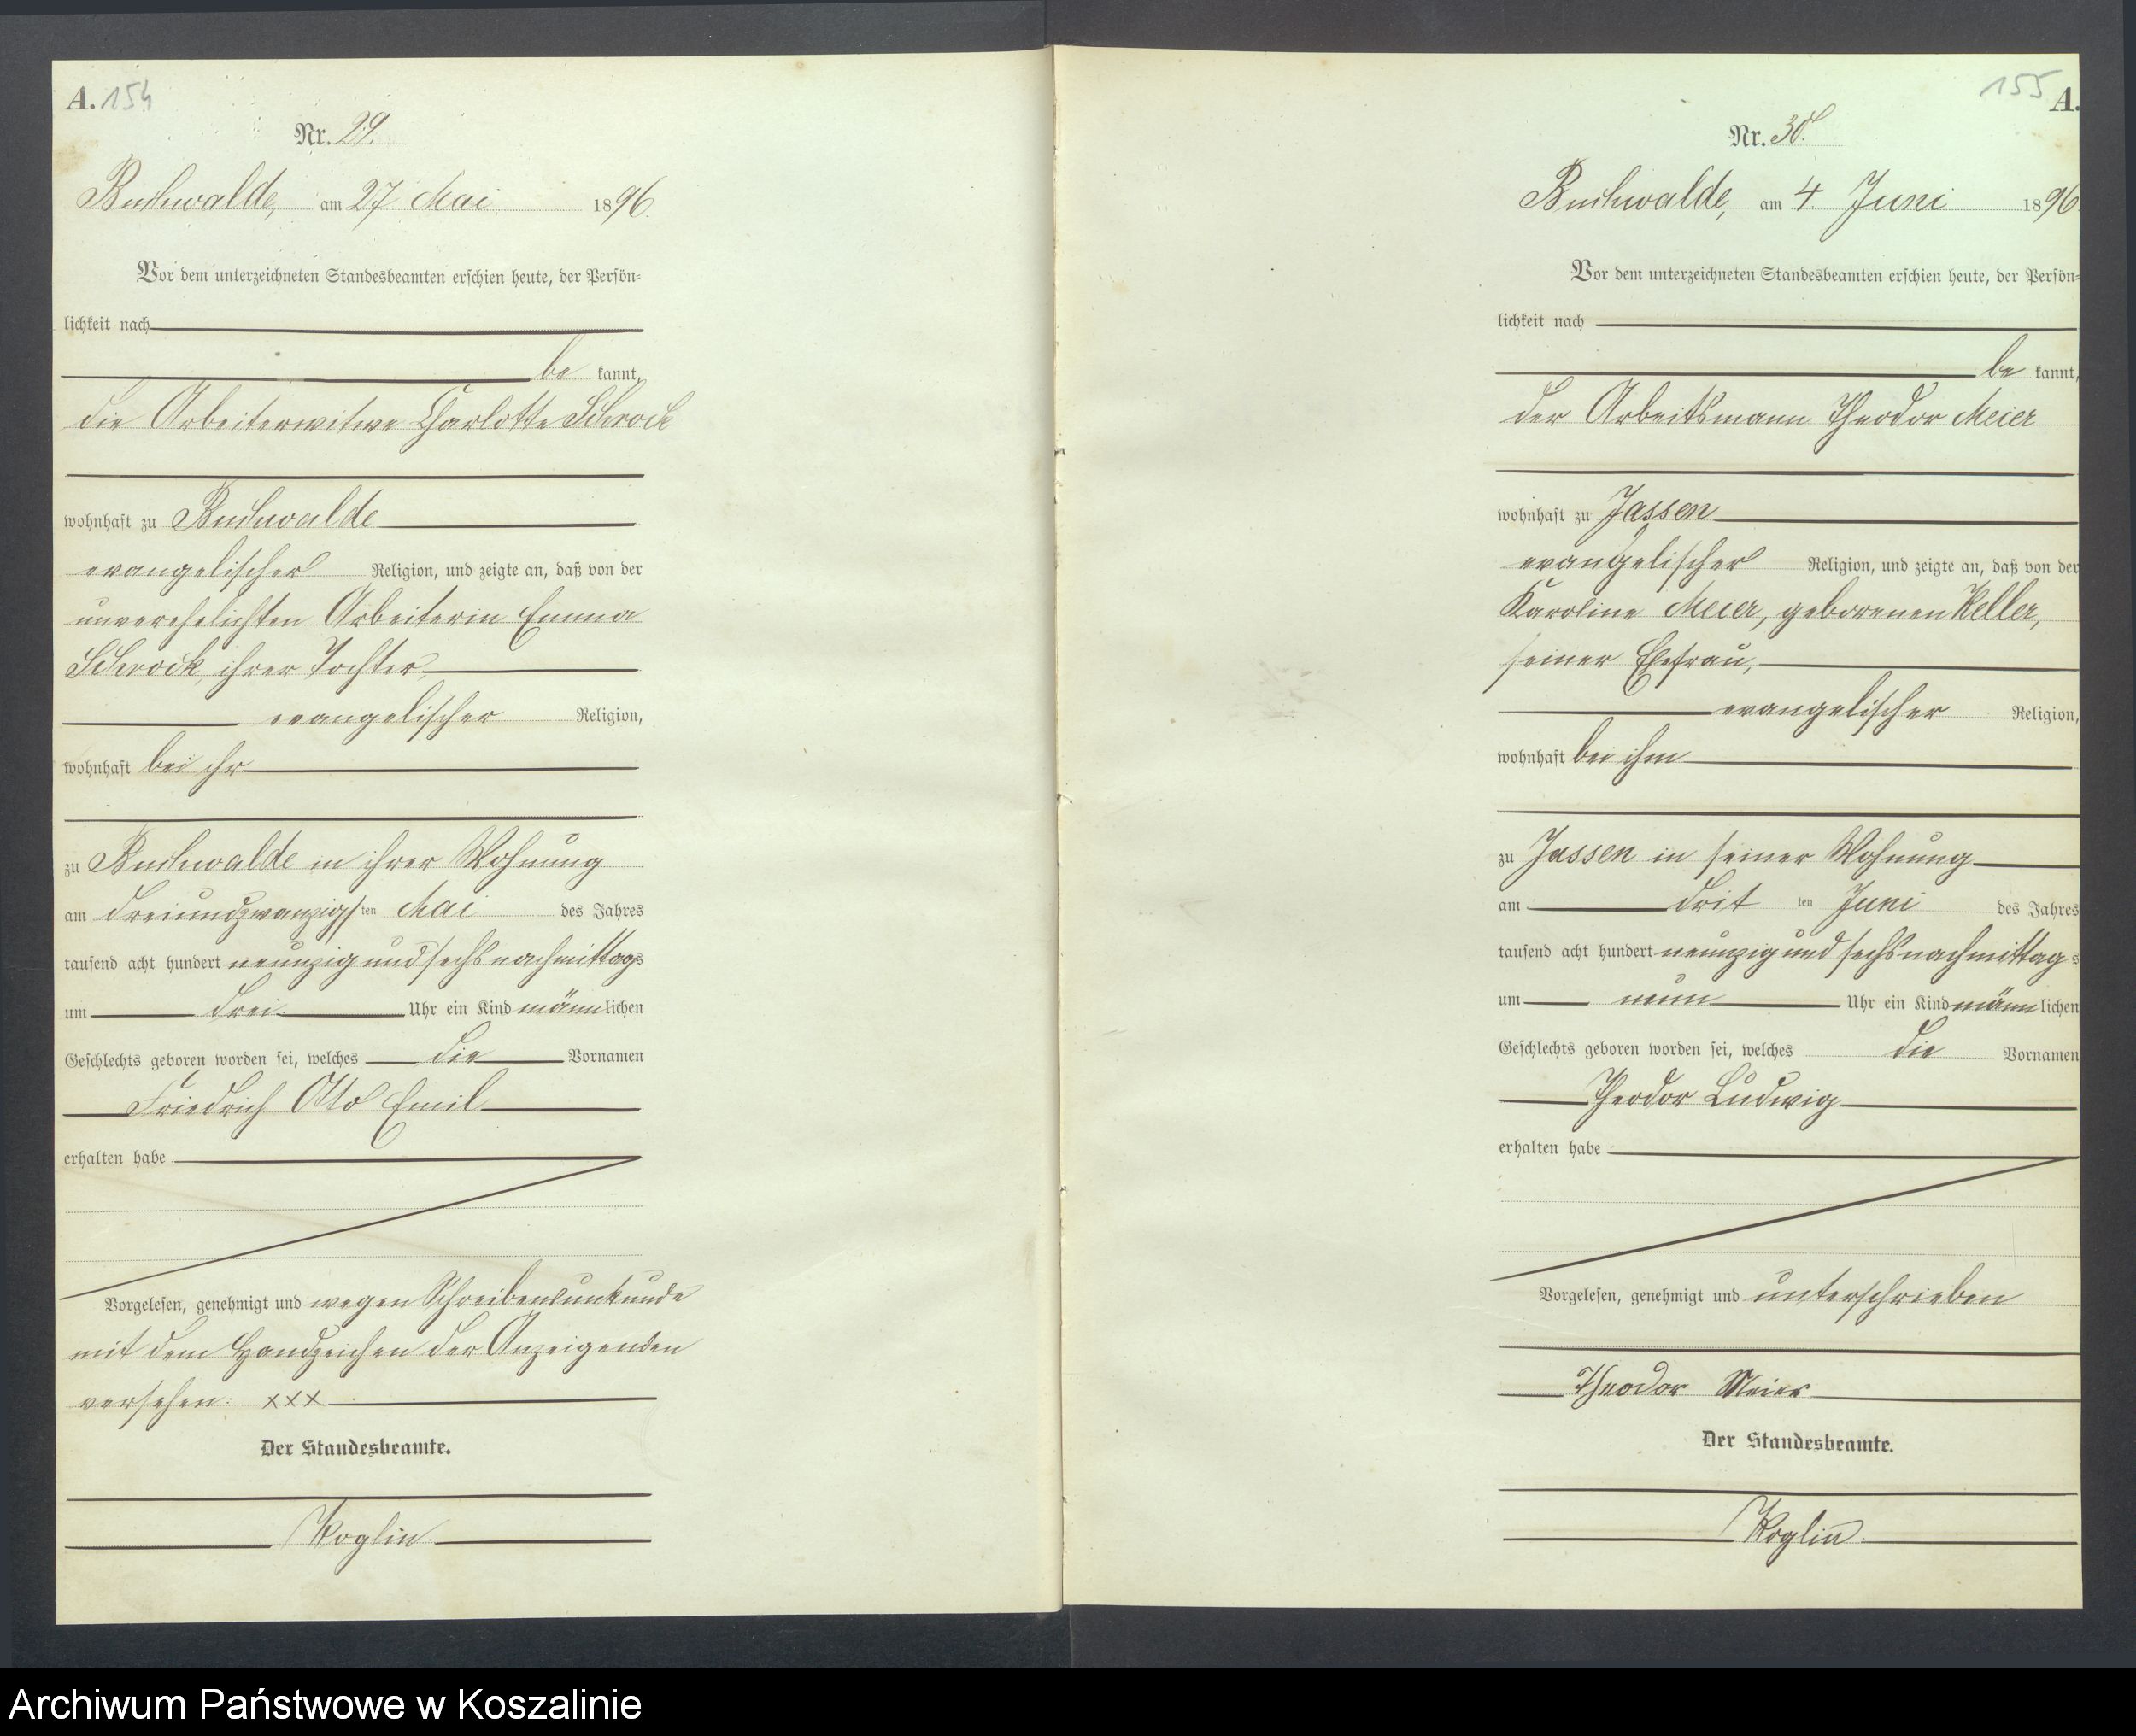 A. 154
Nr. 29.
Buchwalde, am 27 Mai 1896.
Vor dem unterzeichneten Standesbeamten erschien heute, der Persön-
lichkeit nach
be kannt,
die Arbeiterwitwe Charlotte Schrock
wohnhaft zu Buchwalde
evangelischer Religion, und zeigte an, daß von der
unverehelichten Arbeiterin Emma
Schrock, ihrer Tochter,
evangelischer Religion,
wohnhaft bei ihr
zu Buchwalde in ihrer Wohnung
am dreiundzwanzigsten Mai des Jahres
tausend acht hundert neunzig und sechs nachmittags
um drei Uhr ein Kind männlichen
Geschlechts geboren worden sei, welches die Vornamen
Friedrich Otto Emil
erhalten habe
Vorgelesen, genehmigt und wegen Schreibensunkunde
mit dem Handzeichen der Anzeigenden
versehen: xxx
Der Standesbeamte.
Koglin.
155 A.
Nr. 30.
Buchwalde, am 4. Juni 1896
Vor dem unterzeichneten Standesbeamten erschien heute, der Persön-
lichkeit nach
be kannt,
der Arbeitsmann Theodor Meier
wohnhaft zu Jassen
evangelischer Religion, und zeigte an, daß von der
Karoline Meier, geborenen Keller,
seiner Ehefrau,
evangelischer Religion,
wohnhaft bei ihm
zu Jassen in seiner Wohnung
am dritten Juni des Jahres
tausend acht hundert neunzig und sechs nachmittags
um neun Uhr ein Kind männlichen
Geschlechts geboren worden sei, welches die Vornamen
Theodor Ludwig
erhalten habe
Vorgelesen, genehmigt und unterschrieben
Theodor Meier
Der Standesbeamte.
Koglin.
Archiwum Państwowe w Koszalinie